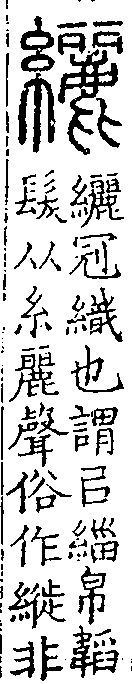 纚
纚冠織也謂㠯緇帛韜
髮从糸麗聲俗作縰非